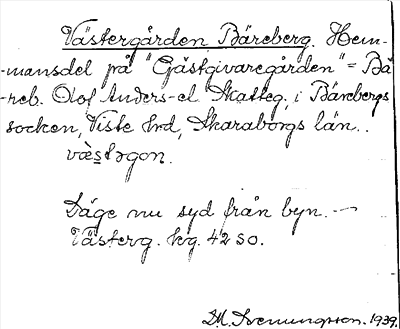 Västergården Bäreberg. Hem-
-mansdel på "Gästgivaregården" = Bä-
-reb. Olof Anders-el Skatteg, i Bärebergs
socken, Viste hrd, Skaraborgs län..
væstəgon.
Däge nu syd från byn. —
Västerg. kg. 42 SO.
1939.